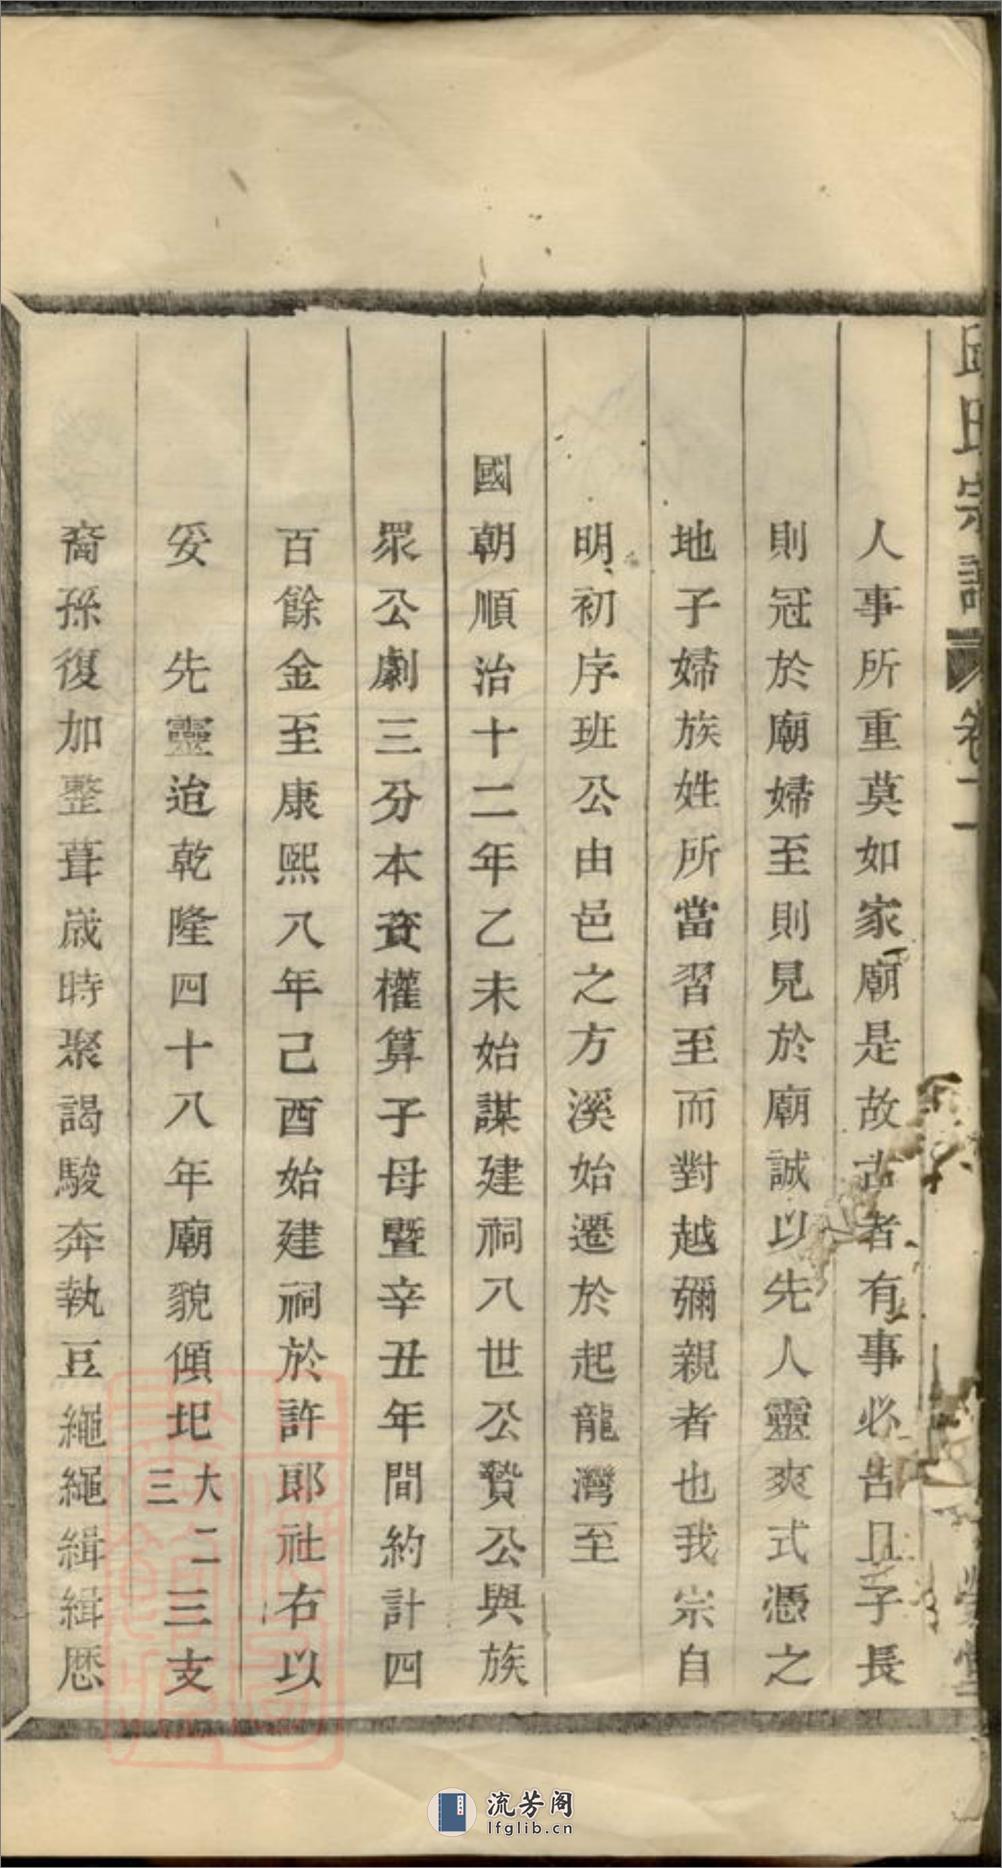 邱氏宗譜
卷一
人事所重莫如家廟是故古者有事必告且子長
則冠於廟婦至則見於廟誠以先人靈爽式憑之
地子婦族姓所當習至而對越彌親者也我宗自
明初序班公由邑之方溪始遷於起龍灣至
國朝順治十二年乙未始謀建祠八世公贊公與族
眾公劇三分本資權算子母暨辛丑年間約計四
百餘金至康熙八年己酉始建祠於許郎社右以
妥 先靈迨乾隆四十八年廟貌傾圯大三二三支
裔孫復加整葺歲時聚謁駿奔執豆繩繩緝緝歷
流芳阁
lfglib.cn